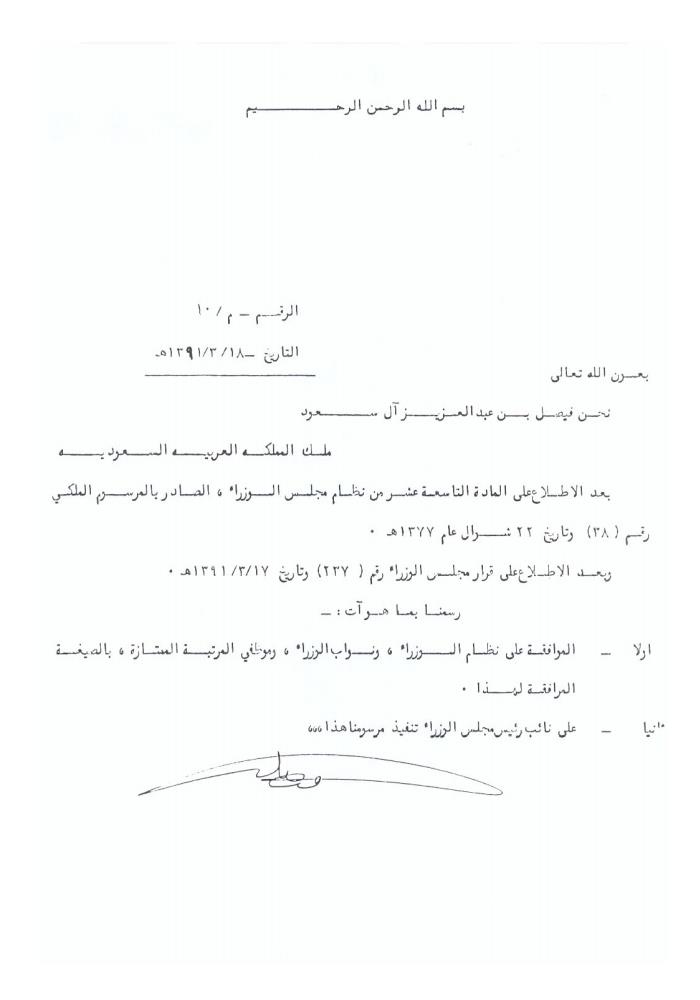 بسم الله الرحمن الرحيم
الرقم - م / ١٠
التاريخ - ١٣٩١/٣/١٨هـ
بعون الله تعالى
نحن فيصل بن عبدالعزيز آل سعود
ملك المملكه العربيه السعوديه
بعد الاطلاع على المادة التاسعة عشر من نظام مجلس الوزراء ، الصادر بالمرسوم الملكي
رقم (٣٨) وتاريخ ٢٢ شوال عام ١٣٧٧هـ .
وبعد الاطلاع على قرار مجلس الوزراء رقم ( ٢٣٧) وتاريخ ١٣٩١/٣/١٧هـ .
رسمنا بما هو آت : -
اولا - الموافقة على نظام الوزراء ، ونواب الوزراء ، وموظفي المرتبة الممتازة ، بالصيغة
المرافقة لهذا .
ثانيا - على نائب رئيس مجلس الوزراء تنفيذ مرسومنا هذا ،،،
فيصل